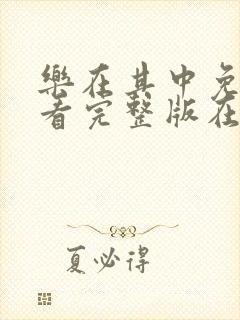 樂在其中免
看完整版在
夏必得